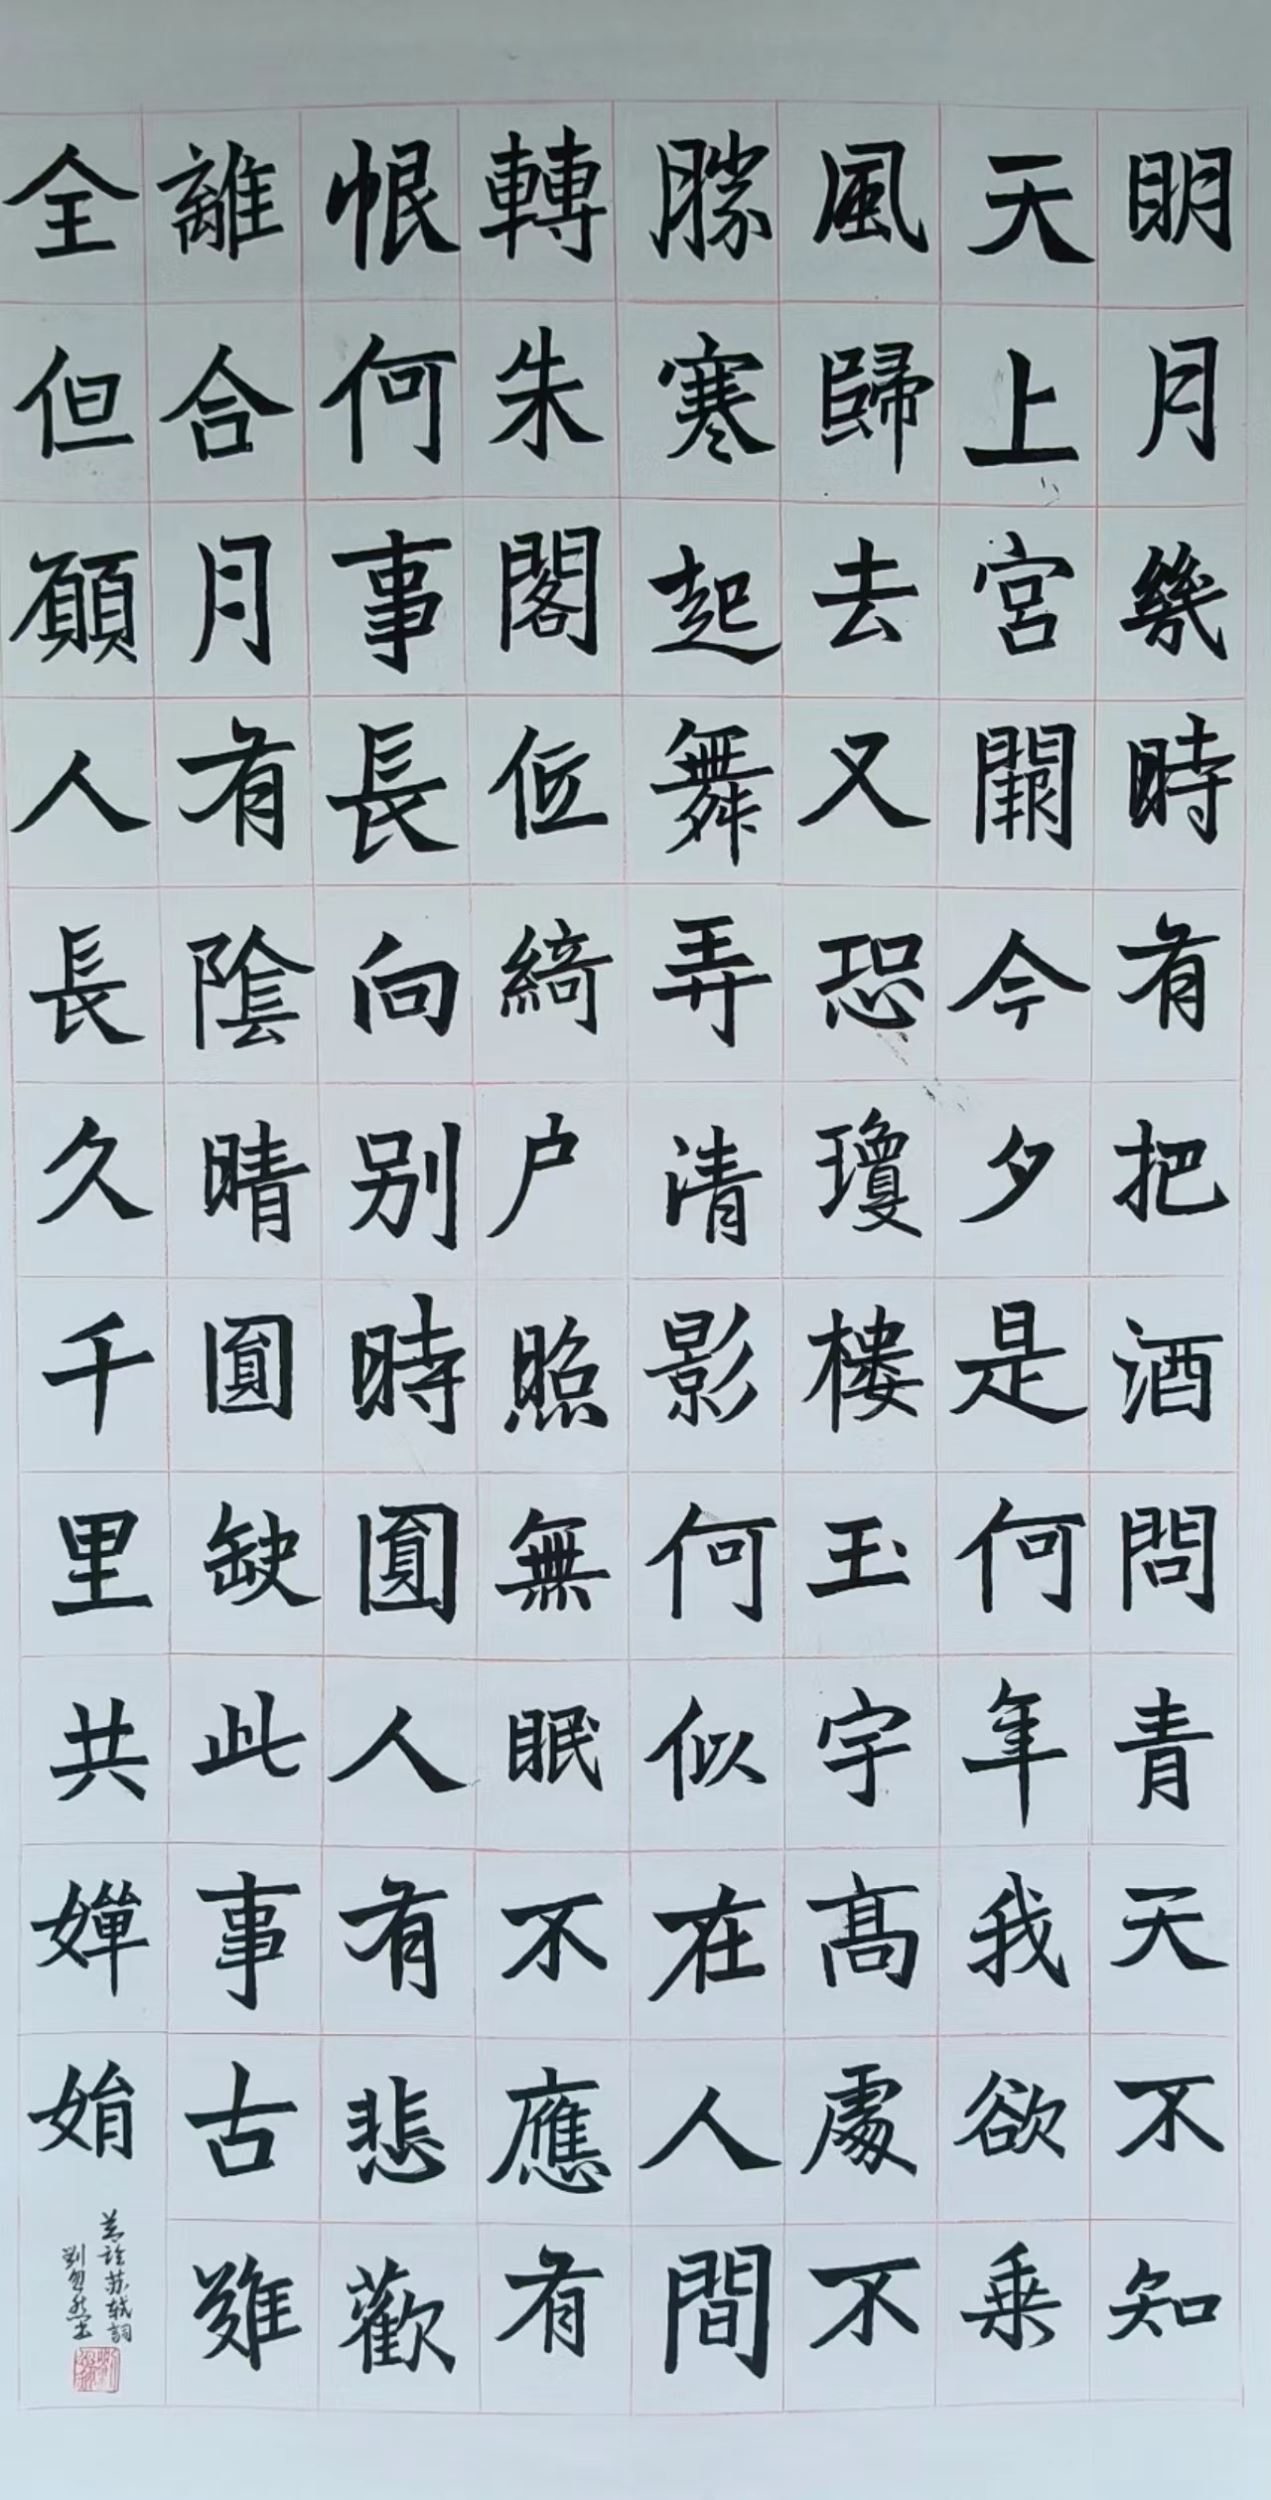 明月幾時有把酒問青天不知
天上宮闕今夕是何年我欲乗
風歸去又恐瓊樓玉宇髙處不
勝寒起舞弄清影何似在人間
轉朱閣低綺户照無眠不應有
恨何事長向别時圓人有悲歡
離合月有陰晴圓缺此事古難
全但願人長久千里共嬋娟
苏轼詞
劉